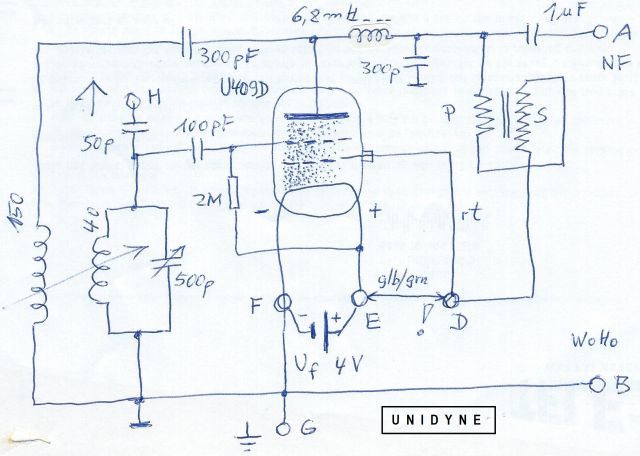 6,8mH
1µF
A
NF
300pF
300p
U409D
H
50p
100pF
P
S
2M
-
+
rt
150
40
500p
glb/grn
F
E
D
!
- +
Uf 4V
WoHo
B
G
UNIDYNE